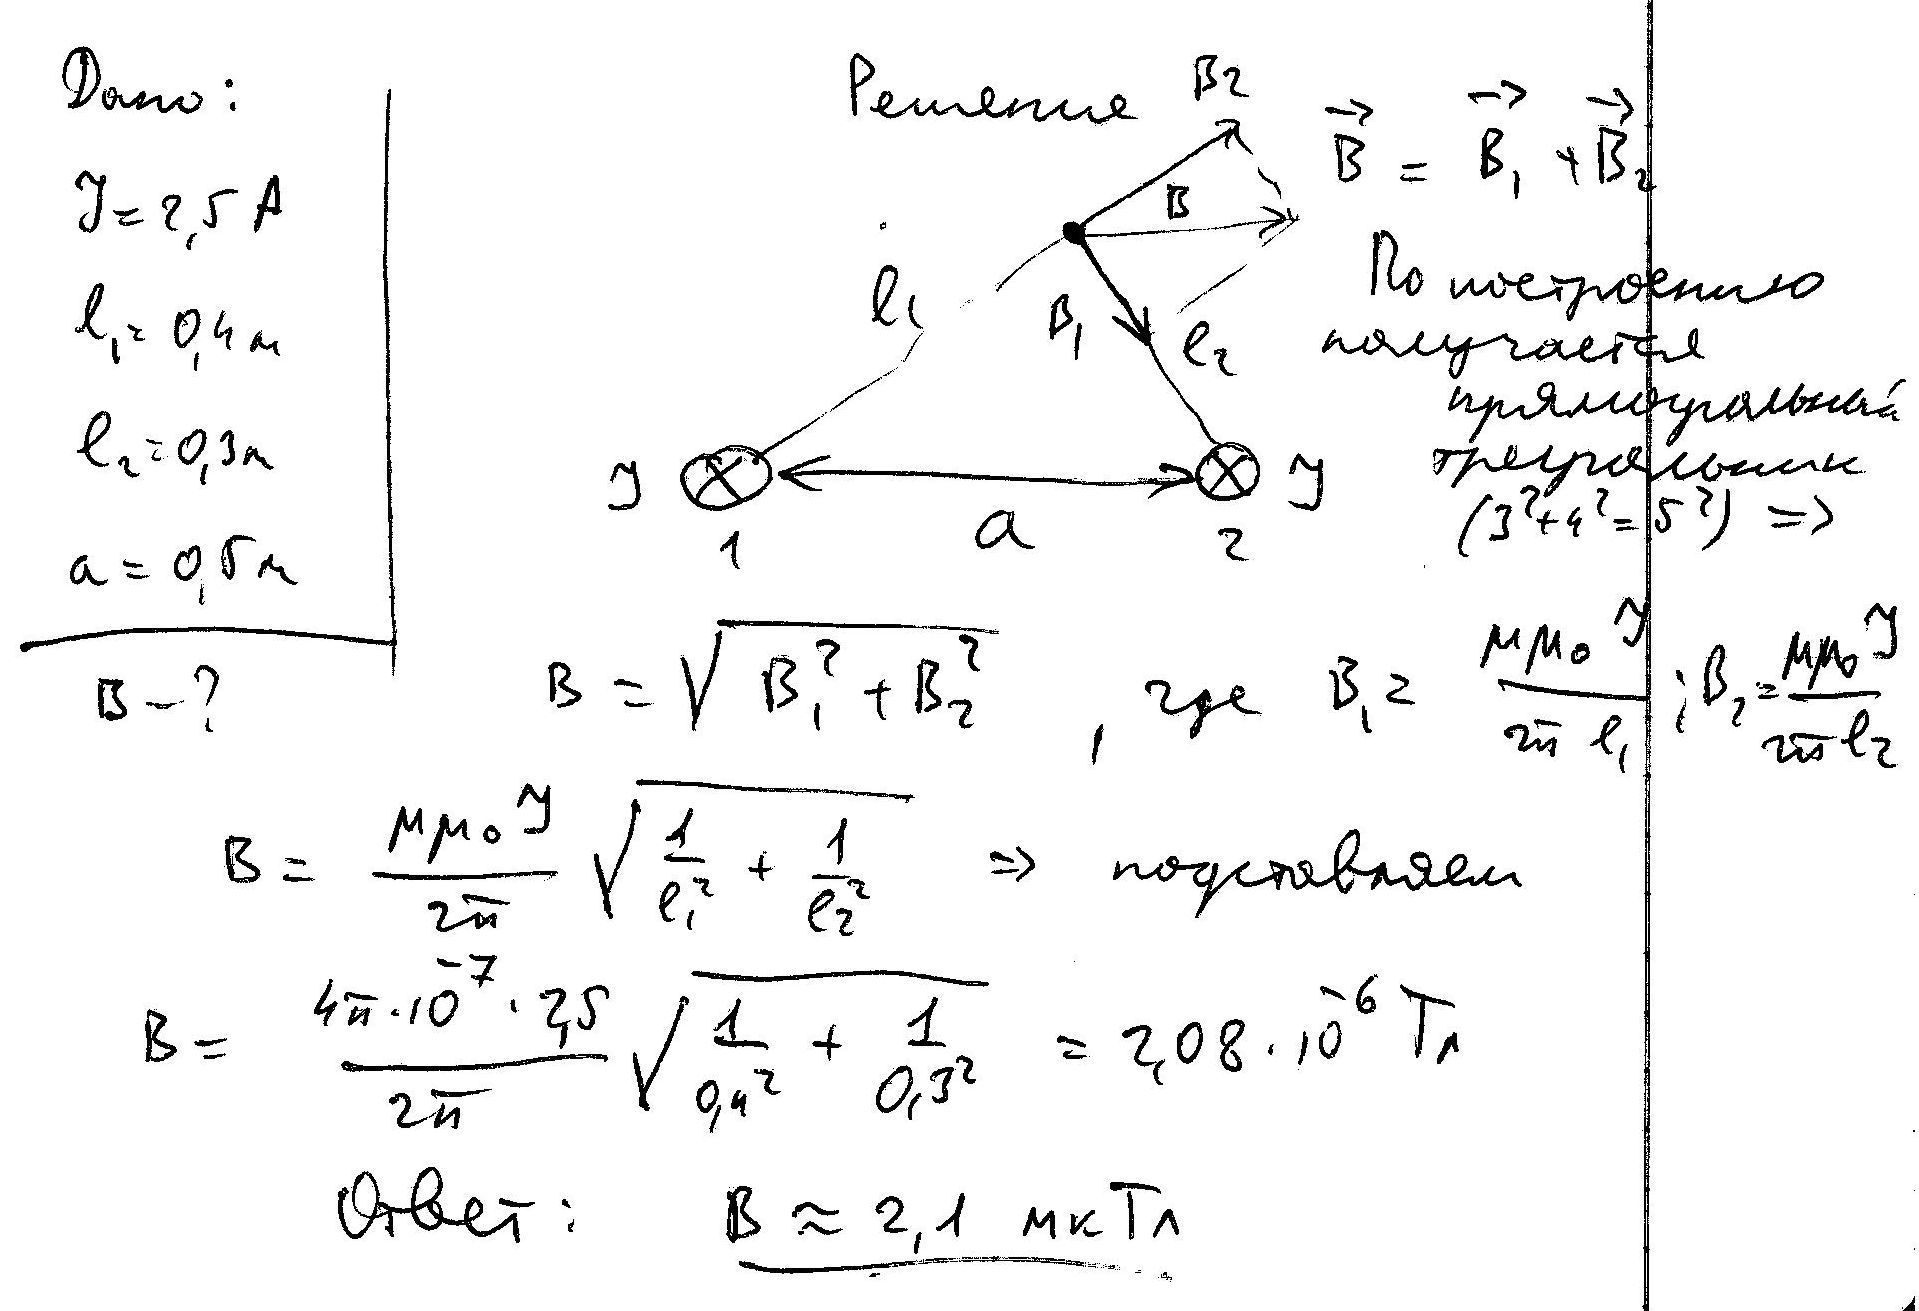 Дано:
I = 2,5 А
l₁ = 0,4 м
l₂ = 0,3 м
a = 0,5 м
B – ?
Решение
B₂
B
B₁
l₁
l₂
I
I
a
1
2
B⃗ = B⃗₁ + B⃗₂
По построению
получается
прямоугольный
треугольник
(3² + 4² = 5²) =>
B = √(B₁² + B₂²) , где B₁ = μμ₀I / 2π l₁ ; B₂ = μμ₀I / 2π l₂
B = μμ₀I / 2π √(1/l₁² + 1/l₂²) => подставляем
B = 4π·10⁻⁷·2,5 / 2π √(1/0,4² + 1/0,3²) = 2,08·10⁻⁶ Тл
Ответ: B ≈ 2,1 мкТл